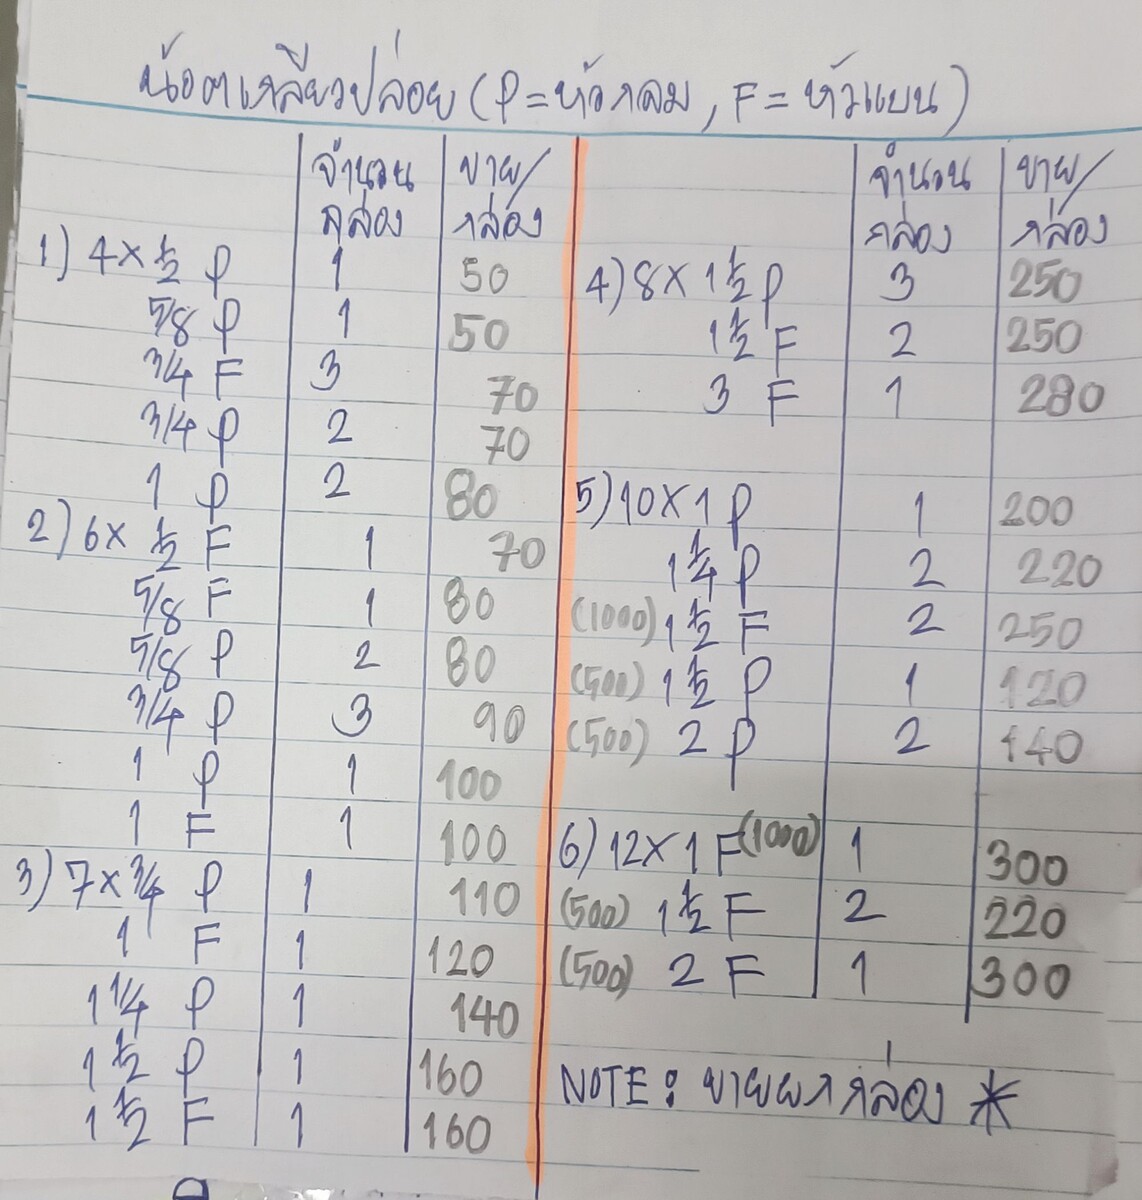 น๊อตเกลียวปล่อย (P=หัวกลม, F=หัวแบน)
จำนวน กล่อง ขาย/กล่อง
1) 4 x ½ P 1 50
5/8 P 1 50
3/4 F 3 70
3/4 P 2 70
1 P 2 80
2) 6 x ½ F 1 70
5/8 F 1 80
5/8 P 2 80
3/4 P 3 90
1 P 1 100
1 F 1 100
3) 7 x 3/4 P 1 110
1 F 1 120
1 1/4 P 1 140
1 ½ P 1 160
1 ½ F 1 160
จำนวน กล่อง ขาย/กล่อง
4) 8 x 1 ½ P 3 250
1 ½ F 2 250
3 F 1 280
5) 10 x 1 P 1 200
1 ¼ P 2 220
(1000) 1 ½ F 2 250
(500) 1 ½ P 1 120
(500) 2 P 2 140
6) 12 x 1 F (1000) 1 300
(500) 1 ½ F 2 220
(500) 2 F 1 300
NOTE : ขายยกกล่อง *